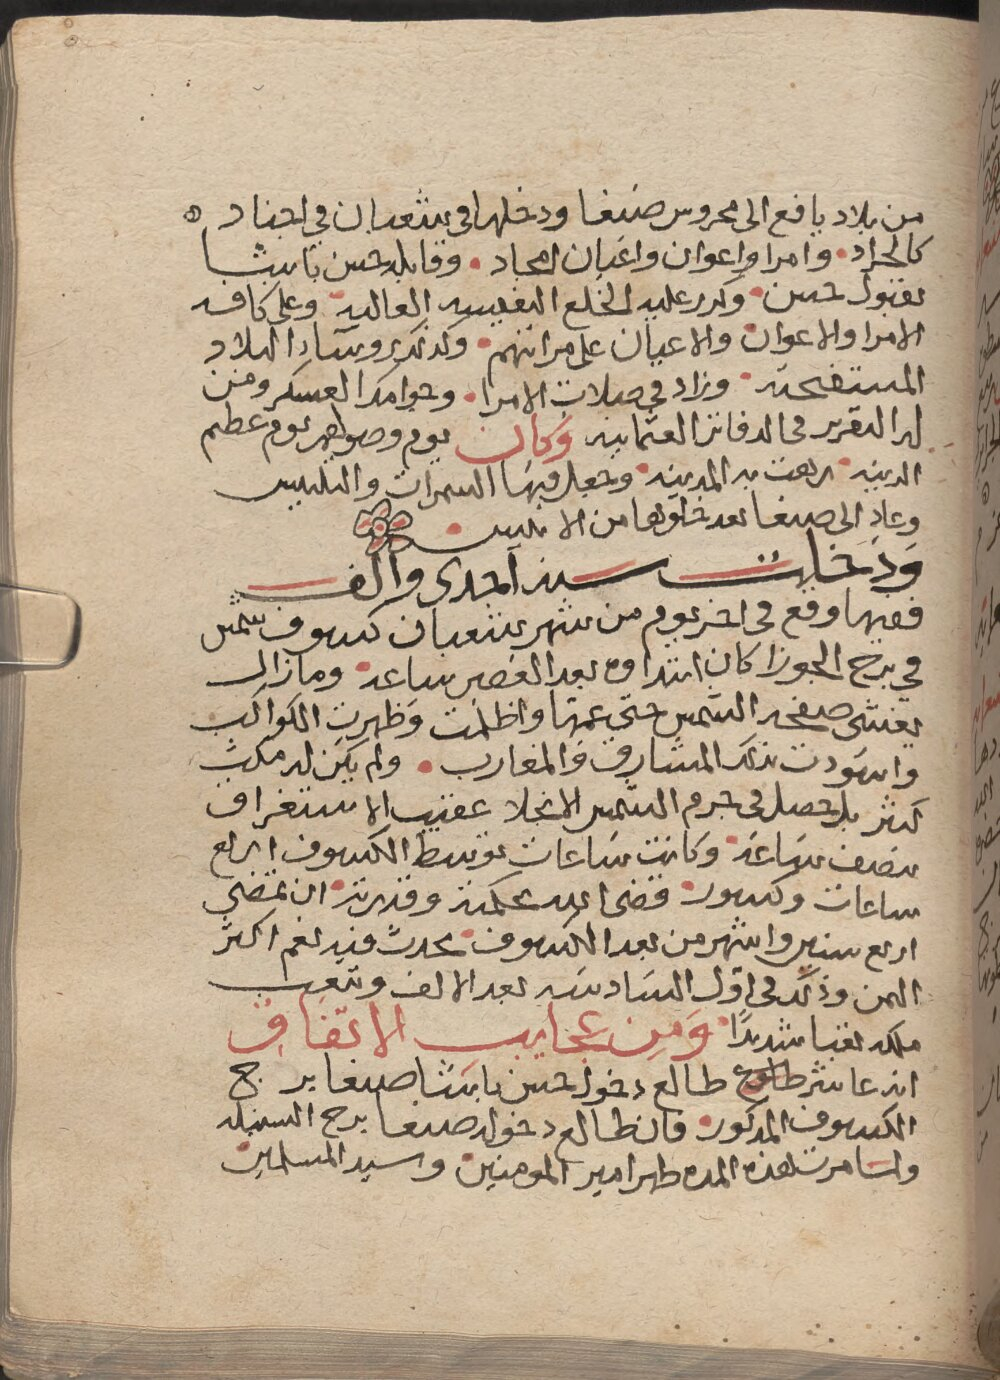 من بلاد يافع الى محروس صنعا ودخلها في شعبان في اجناد
كالجراد وامرا واعوان واعيان امجاد وقابله حسن باشا
بقبول حسن وكرر عليه الخلع النفيسه العاليه وعلى كافه
الامرا والاعوان والاعيان على مراتبهم وكذلك رؤساء البلاد
المستفتحه وزاد في صلات الامرا وجوامك العسكر ومن
له التقرير في الدفاتر العثمانيه وكان يوم وصولهم يوم عظيم
الزينه به المدينه وجعل فيها السمرات
وعاد الى صنعا بعد خلوها من الانيس
ودخلت سنه احدى والف
ففيها وقع في اخر يوم من شهر شعبان كسوف شمس
في برج الجوزا كان ابتداوه بعد العصر ساعه وما زال
يغشى صفحه الشمس حتى عمتها واظلمت وظهرت الكواكب
واسودت بذلك المشارق والمغارب ولم يكن له مكث
كثير بل حصل في جرم الشمس الانجلا عقيب الاستغراق
بنصف ساعه وكانت ساعات توسط الكسوف اربع
ساعات وكسور فقضى الله بحكمته وقدرته ان تمضي
اربع سنين واشهر من بعد الكسوف يحدث فيه نعم اكثر
اليمن وذلك في اول السادسه بعد الالف وتتعب
ملكه تعبا شديدا ومن عجايب الاتفاق
انه عاشر طلوع طالع دخول حسن باشا صنعا برج
الكسوف المذكور فان طالع دخوله صنعا برج السنبله
ولما مرت هذه المده ظهر امير المومنين وسيد المسلمين